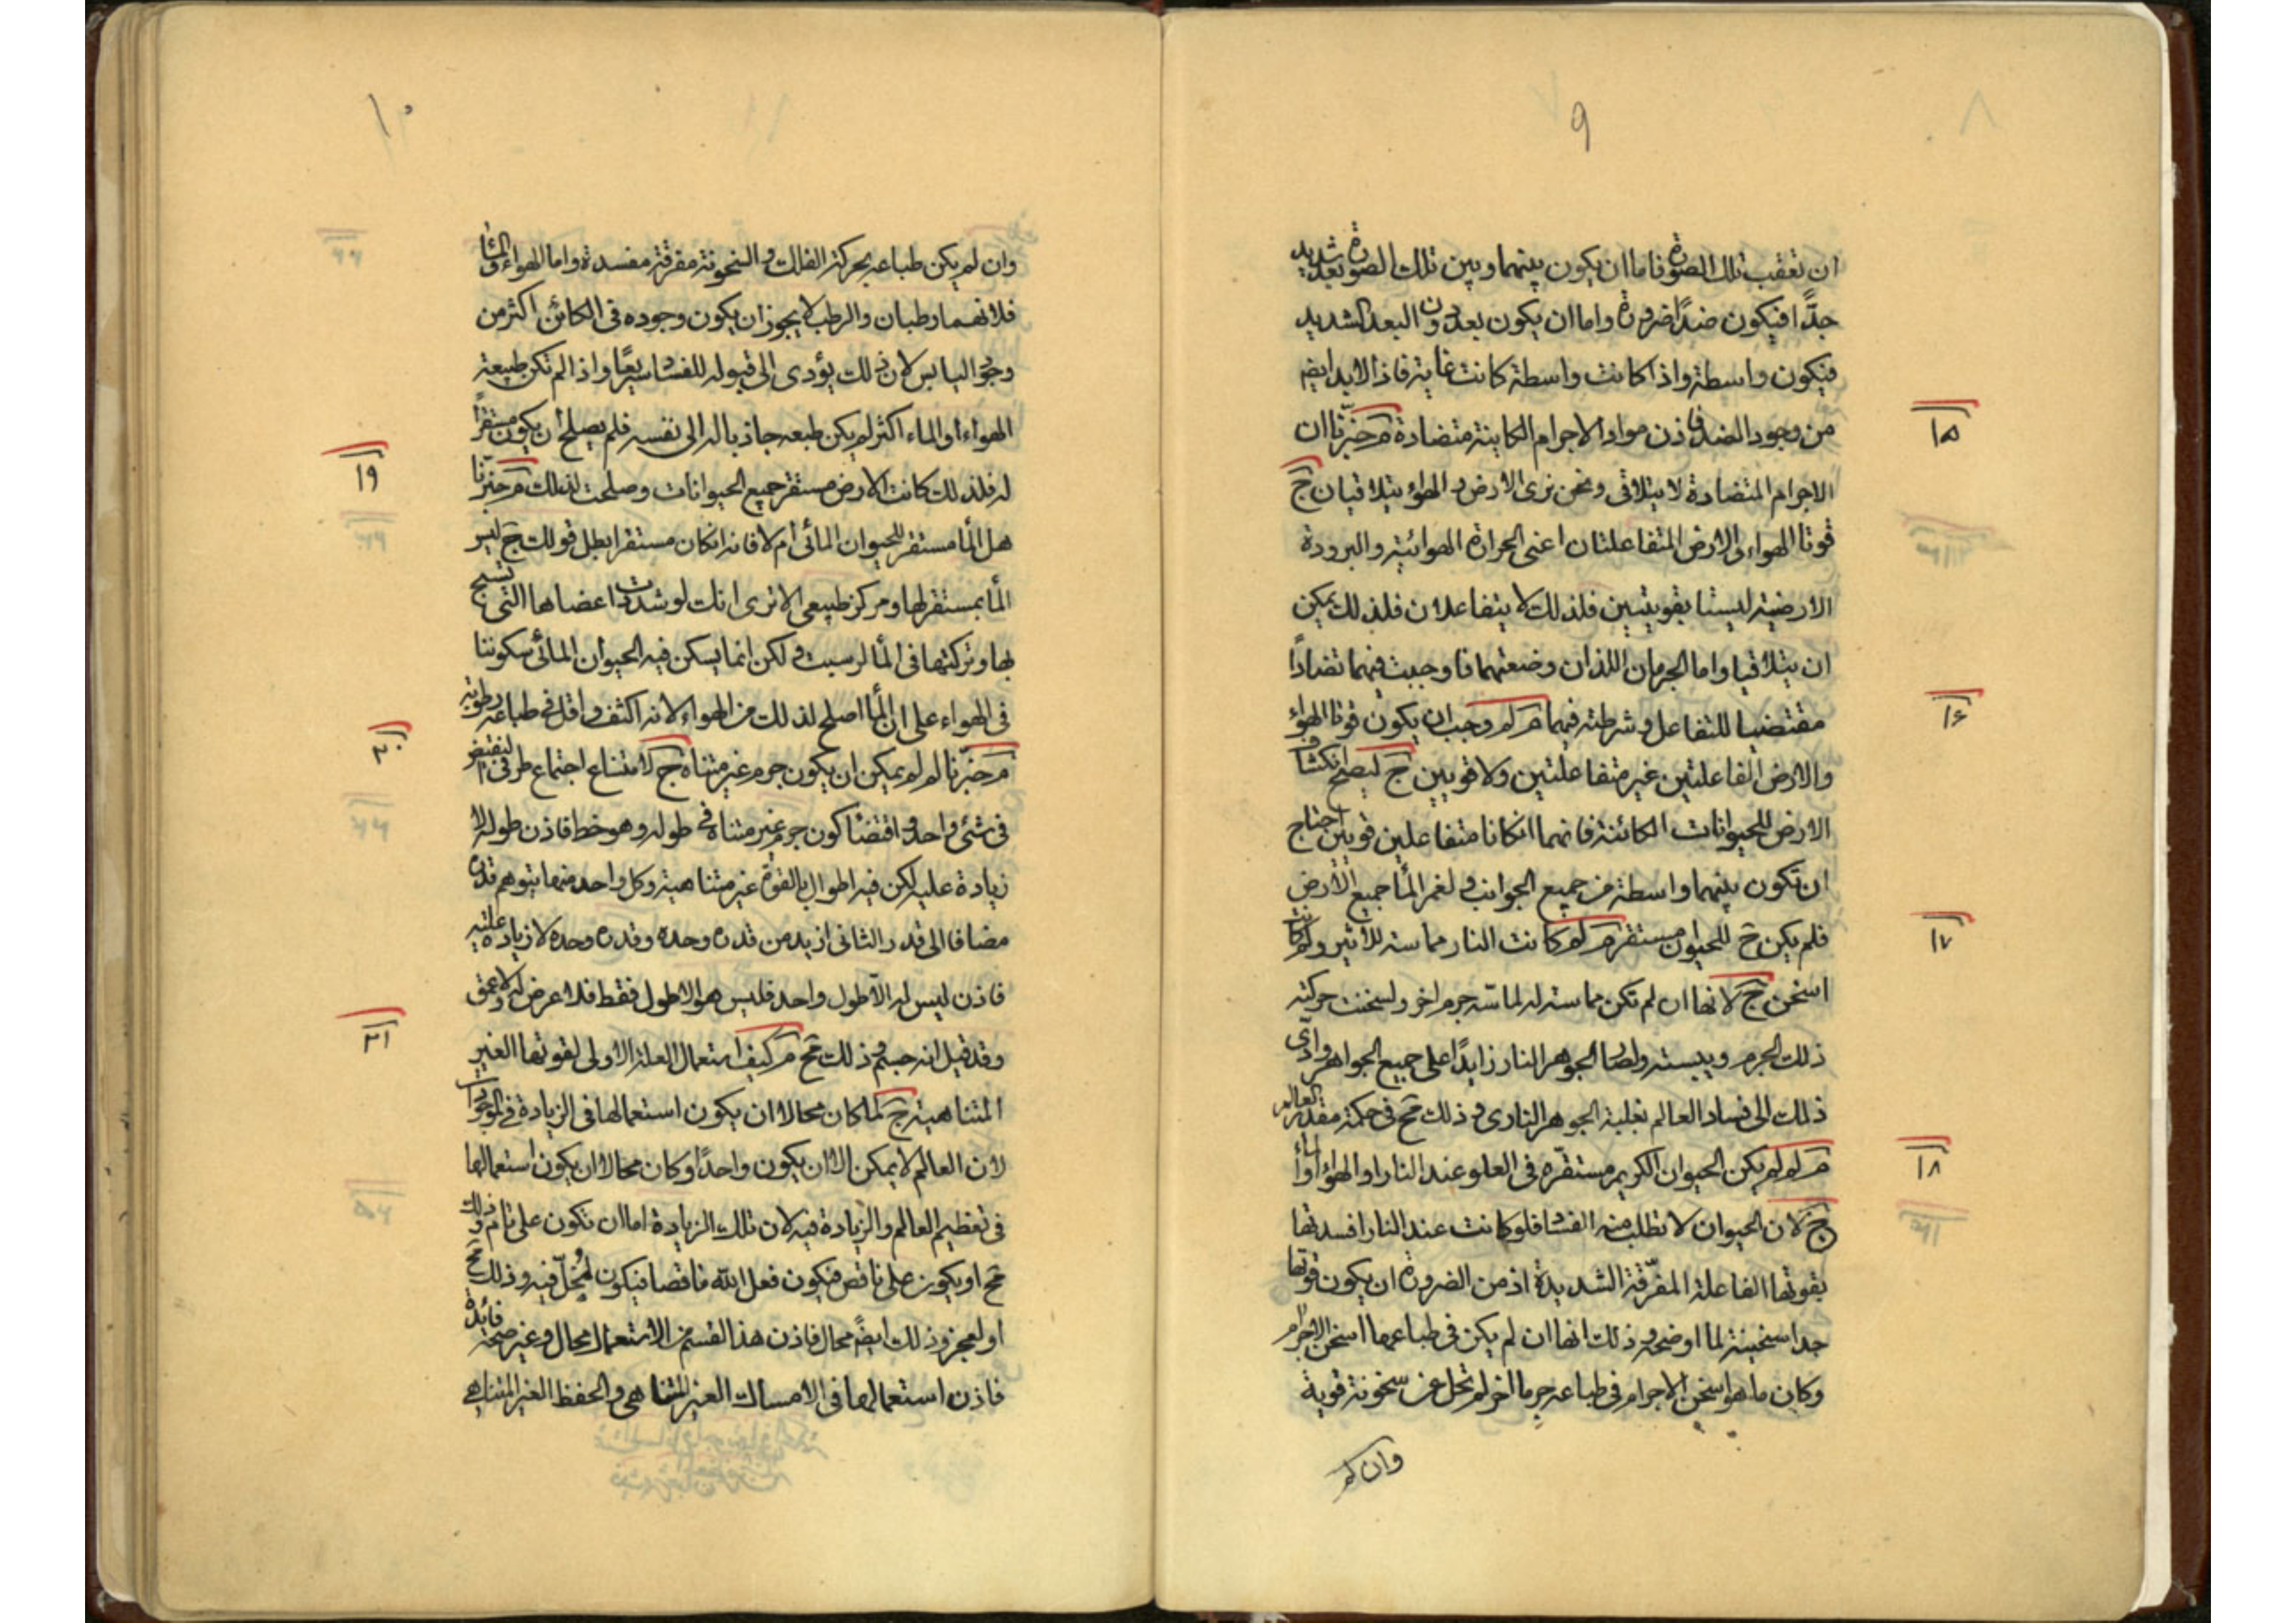 ٩
ان تعقب تلك الصورة فاما ان يكون بينهما وبين تلك الصورة بعد شديد
جدًّا فيكون ضدًا ضرورة واما ان يكون بعد دون البعد الشديد
فيكون واسطة واذا كانت واسطة كانت غاية فاذا لابد ايضم
من وجود الضد فاذن مواد الاجرام الكاينة متضادة م خبّرنا ان
١٥
الاجرام المتضادة لا يتلاقى ونحن نرى الارض والهواء يتلاقيان ج
قوتا الهواء والارض المتفاعلتان اعنى الحرارة الهوائية والبرودة
الارضية ليستا بقويتين فلذلك لا يتفاعلان فلذلك يمكن
ان يتلاقيا واما الجرمان اللذان وضعتهما فاوجبت فيهما تضادًا
مقتضيا للتفاعل وشرطته فيهما م لم وجب ان يكون قوتا الهواء
١٦
والارض الفاعلتين غير متفاعلتين ولا قويين ج ليصلح انكشاف
الارض للحيوانات الكائنة فانهما ان كانا متفاعلين قويين احتاج
ان تكون بينهما واسطة من جميع الجوانب ولغمر الماء جميع الأرض
فلم يكن ح للحيوان مستقر م لم كانت النار مماسته للأثير ولم كانت
١٧
اسخن ج لانها ان لم تكن مماسته له لماسّه جرم اخر ولسخنت حركته
ذلك الجرم ويبسته ولصار الجوهر النار زايدًا على جميع الجواهر وادّى
ذلك الى فساد العالم بغلبة الجوهر النارى و ذلك مح فى حكمة مقدر العالم
م لم لم يكن الحيوان الكريم مستقرّه فى العلو عند النار او الهواء او الماء
١٨
ج لان الحيوان لا تطلب منه الفساد فلو كانت عند النار افسدتها
بقوتها الفاعلة المفرّقة الشديدة اذ من الضرورة ان يكون قوتها
جدا سخينة لما اوضحه و ذلك انها ان لم يكن فى طباعها اسخن الاجرام
وكان ما هو اسخن الاجرام فى طباعه جرما اخر لم تخل عن سخونة قوية
وان لم
١٠
وان لم يكن طباعه بحركة الفلك والسخونة مفرقة مفسدة واما الهواء والماء
فلانهما رطبان والرطب لا يجوز ان يكون وجوده فى الكائن اكثر من
وجود اليابس لان ذلك يؤدى الى قبوله للفساد سريعًا واذا لم تكن طبيعة
الهواء او الماء اكثر لم يكن طبعه جاذبا له الى نفسه فلم يصلح ان يكون مستقرًا
له فلذلك كانت الارض مستقر جميع الحيوانات وصلحت لذلك م خبّرنا
١٩
هل الماء مستقر للحيوان المائى ام لا فانه ان كان مستقرا بطل قولك ج ليس
الماء بمستقر لها ومركز طبيعى الا ترى انك لو شددت اعضاها التى تسبح
بها وتركتها فى الماء لرسبت و لكن انما يسكن فيه الحيوان المائى سكوننا
فى الهواء على ان الماء اصلح لذلك من الهواء لانه اكثف واقل فى طباعه رطوبة
م خبّرنا لم لم يمكن ان يكون جرم غير متناه ج لامتناع اجتماع طرفى النقيض
٢٠
فى شئ واحد واقتضا كون جرم غير متناه فى طوله وهو خط فاذن طوله لا
زيادة عليه لكن فيه اطوال بالقوة غير متناهية وكل واحد منها يتوهم قدره
مضافا الى قدر الثانى ازيد من قدره وحده وقدره وحده لا زيادة عليه
فاذن ليس له الّا طول واحد فليس هو الا طول فقط فلا عرض له ولا عمق
وقد قيل انه جسم و ذلك مح م كيف استعمال العلة الاولى لقوتها الغير
٢١
المتناهية ج لما كان محالا ان يكون استعمالها فى الزيادة فى الموجودات
لان العالم لا يمكن الا ان يكون واحدًا وكان محالا ان يكون استعمالها
فى تعظيم العالم والزيادة فيه لان تلك الزيادة اما ان تكون على تام وذلك
مح او يكون على ناقص فيكون فعل الله ناقصا فيكون لبخل فيه وذلك مح
او لعجز وذلك ايضم محال فاذن هذا القسم من الاستعمال محال وغير صحة فائدة
فاذن استعمالها فى الامساك الغير المتناهى والحفظ الغير المتناهى